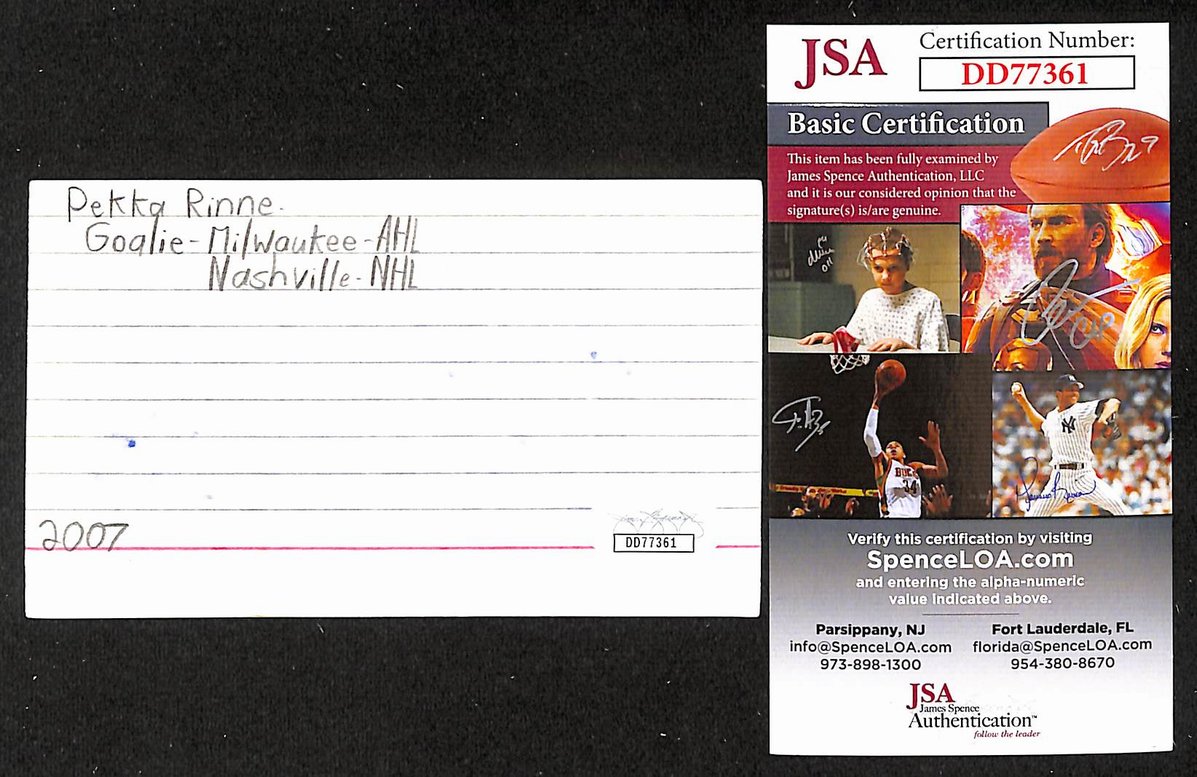 Pekka Rinne.
Goalie-Milwaukee-AHL
Nashville-NHL
2007
DD77361
JSA
Certification Number:
DD77361
Basic Certification
This item has been fully examined by
James Spence Authentication, LLC
and it is our considered opinion that the
signature(s) is/are genuine.
BUCKS
34
Verify this certification by visiting
SpenceLOA.com
and entering the alpha-numeric
value indicated above.
Parsippany, NJ
info@SpenceLOA.com
973-898-1300
Fort Lauderdale, FL
florida@SpenceLOA.com
954-380-8670
JSA
James Spence
Authentication™
follow the leader